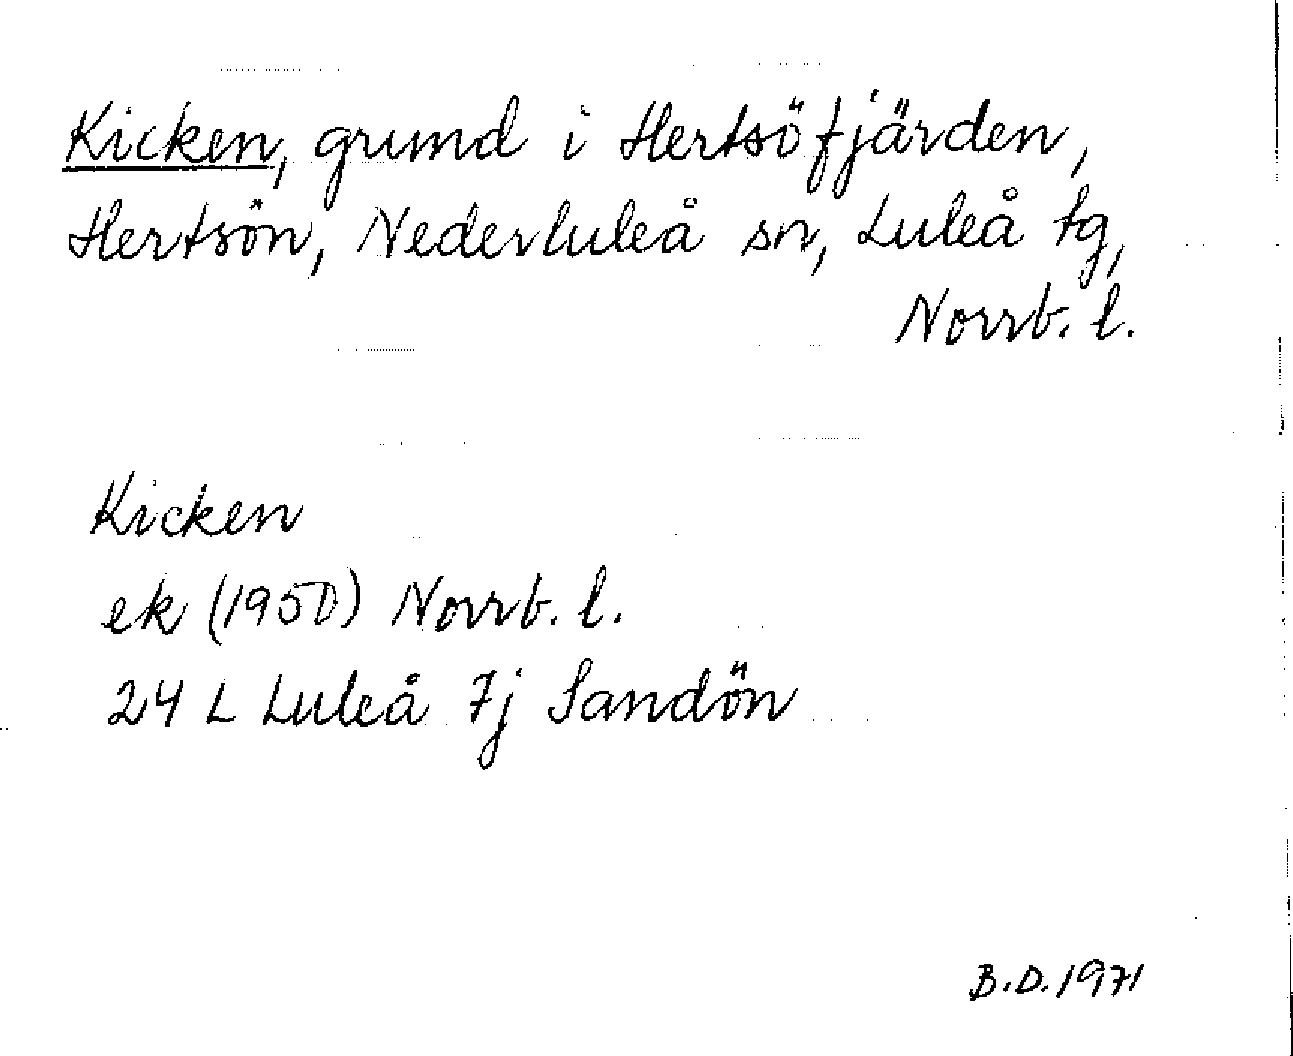 Kicken, grund i Hertsöfjärden,
Hertsön, Nederluleå sn, Luleå tg,
Norrb. l.
Kicken
ek (1950) Norrb. l.
24 L Luleå 7j Sandön
B.D. 1971